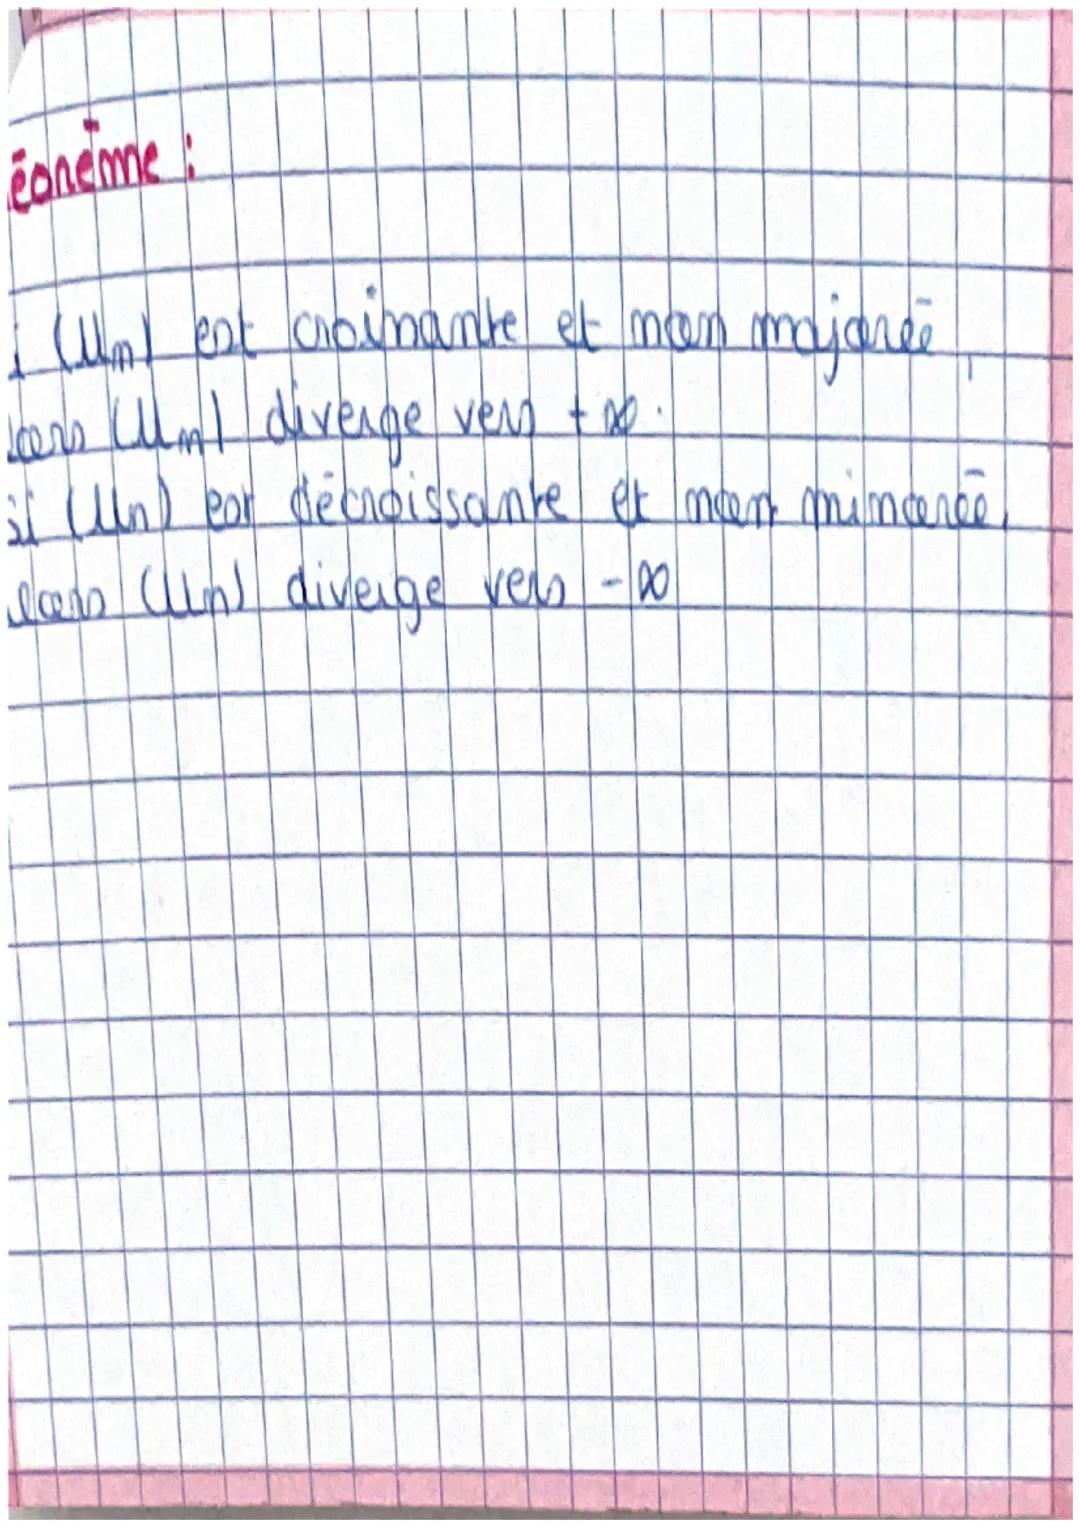 éorème :
i (Un) est croissante et non majorée,
alors (Un) diverge vers +∞.
si (Un) est décroissante et non minorée,
alors (Un) diverge vers -∞